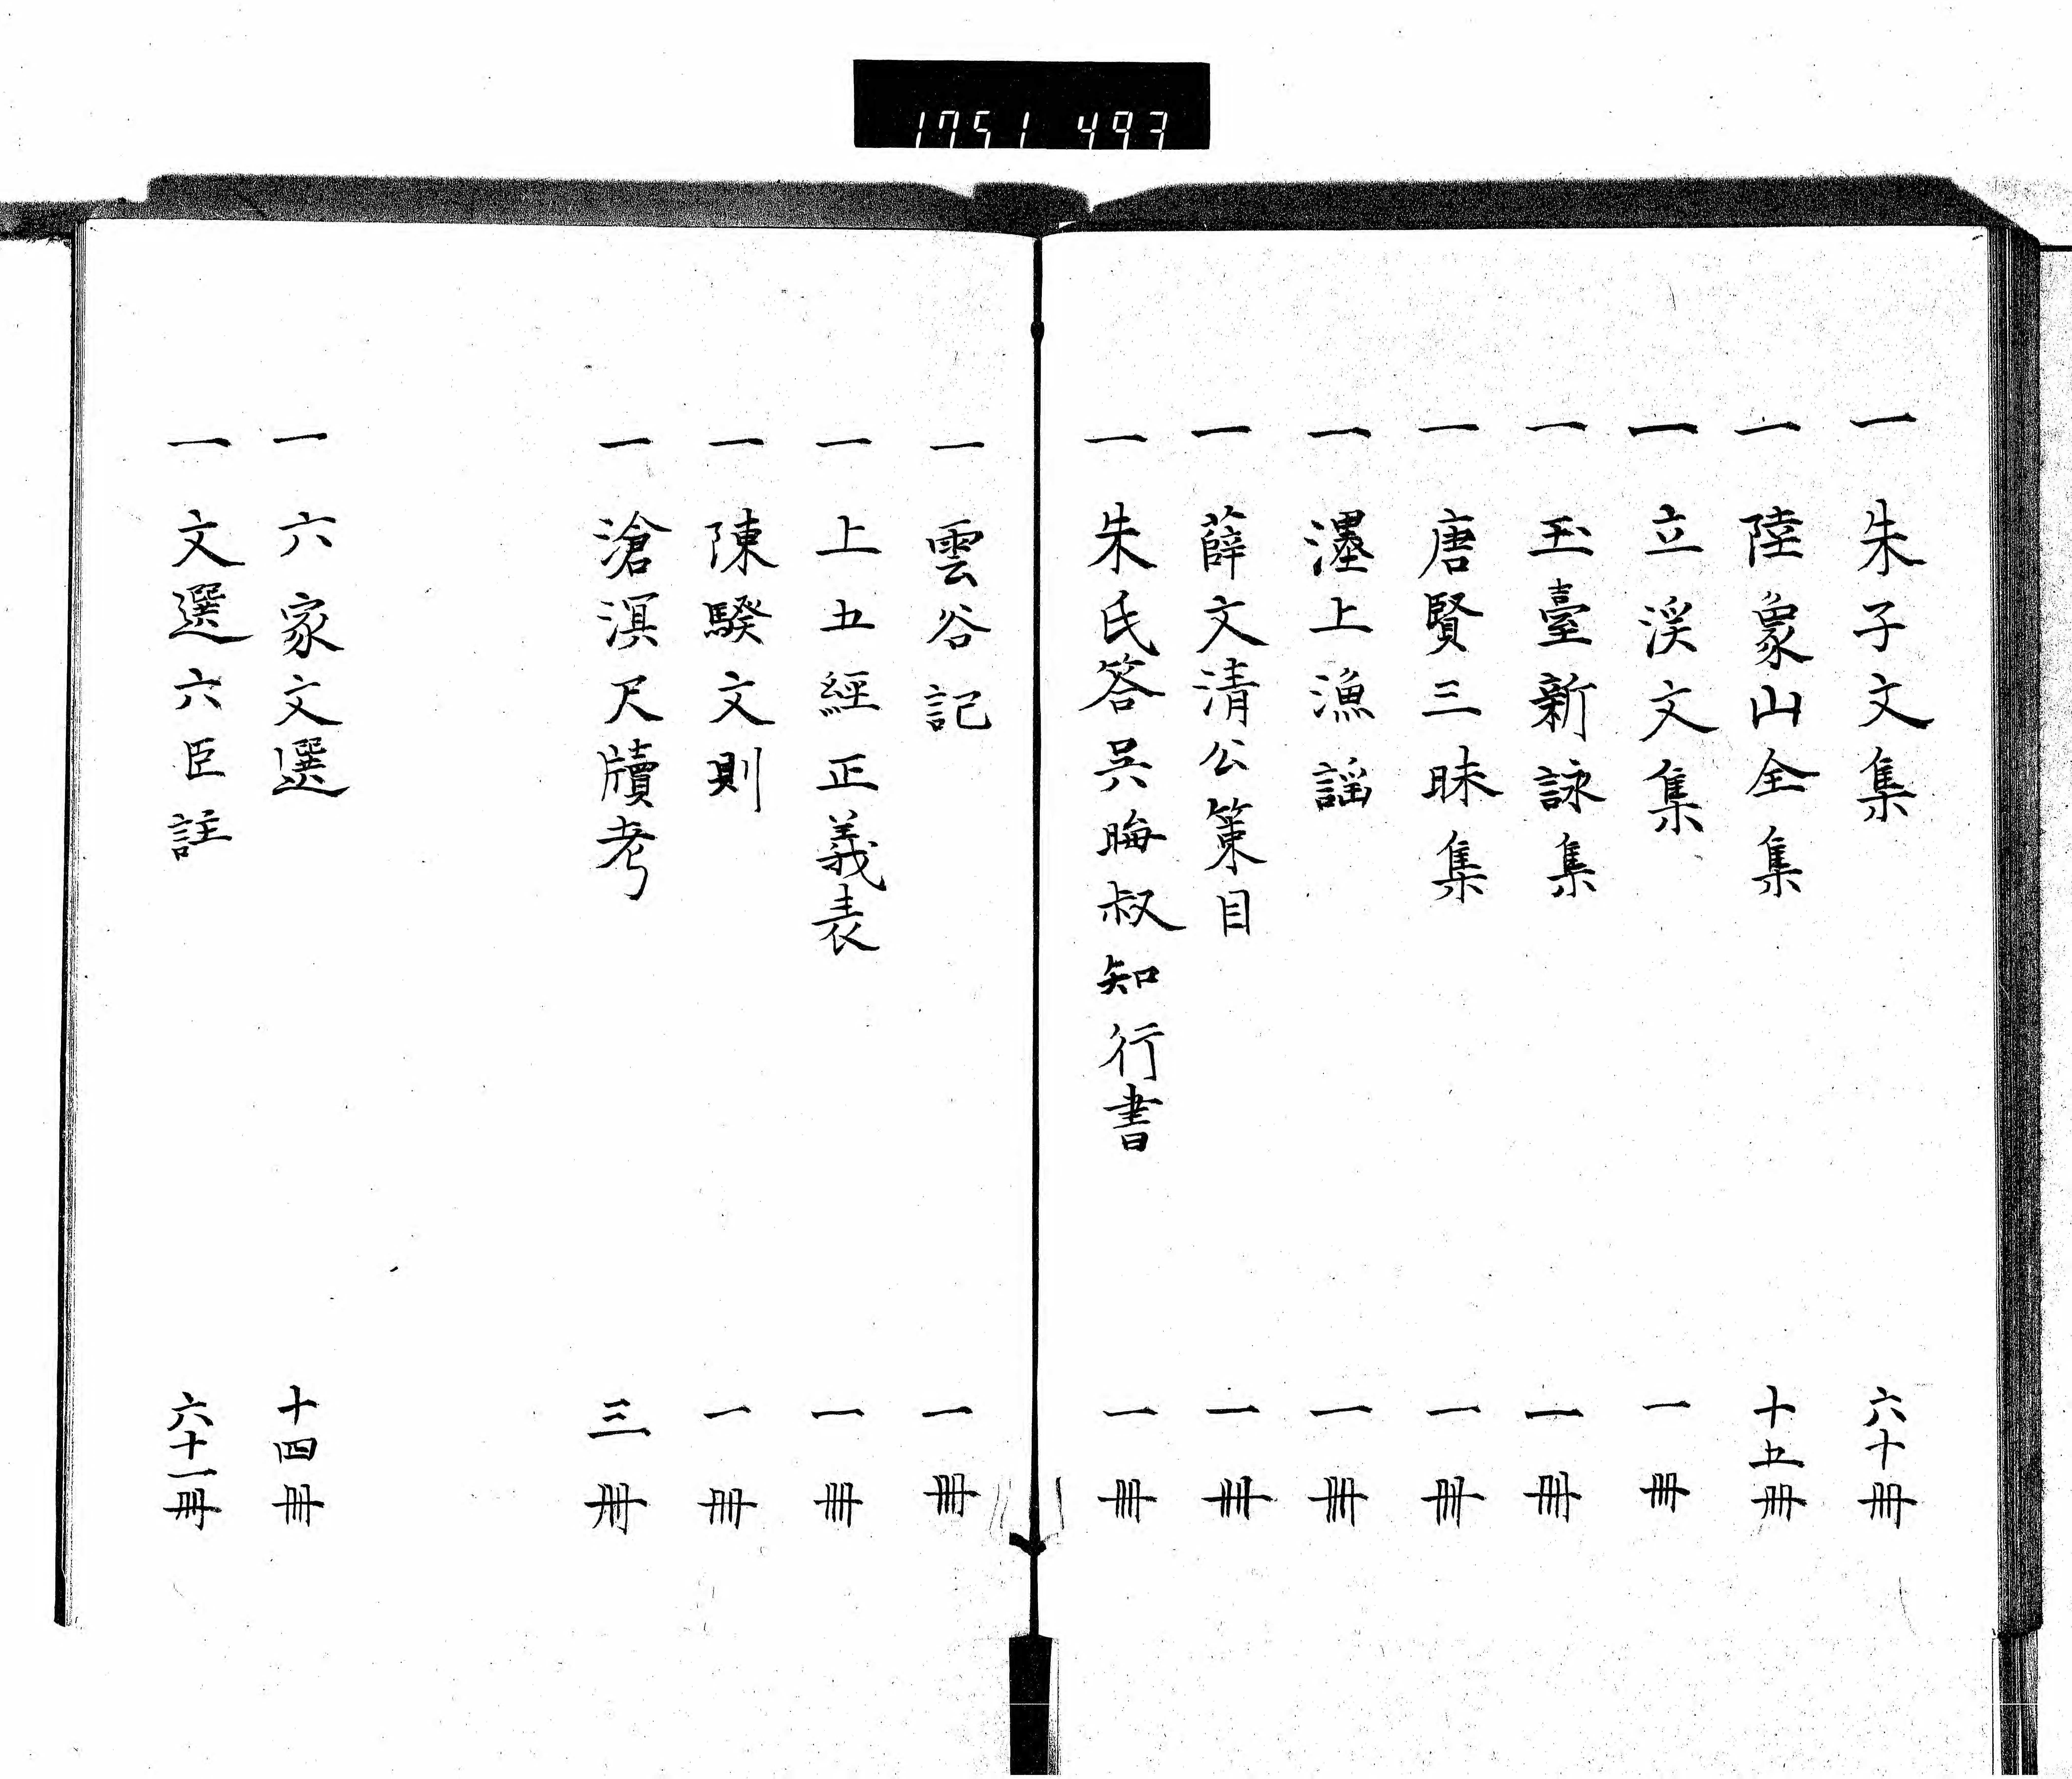 1751 493
一 朱子文集 六十冊
一 陸象山全集 十五冊
一 立渓文集 一冊
一 玉臺新詠集 一冊
一 唐賢三昧集 一冊
一 濹上漁謡 一冊
一 薛文清公策目 一冊
一 朱氏答呉晦叔知行書 一冊
一 雲谷記 一冊
一 上五經正義表 一冊
一 陳騤文則 一冊
一 滄溟尺牘考 三冊
一 六家文選 十四冊
一 文選六臣註 六十一冊